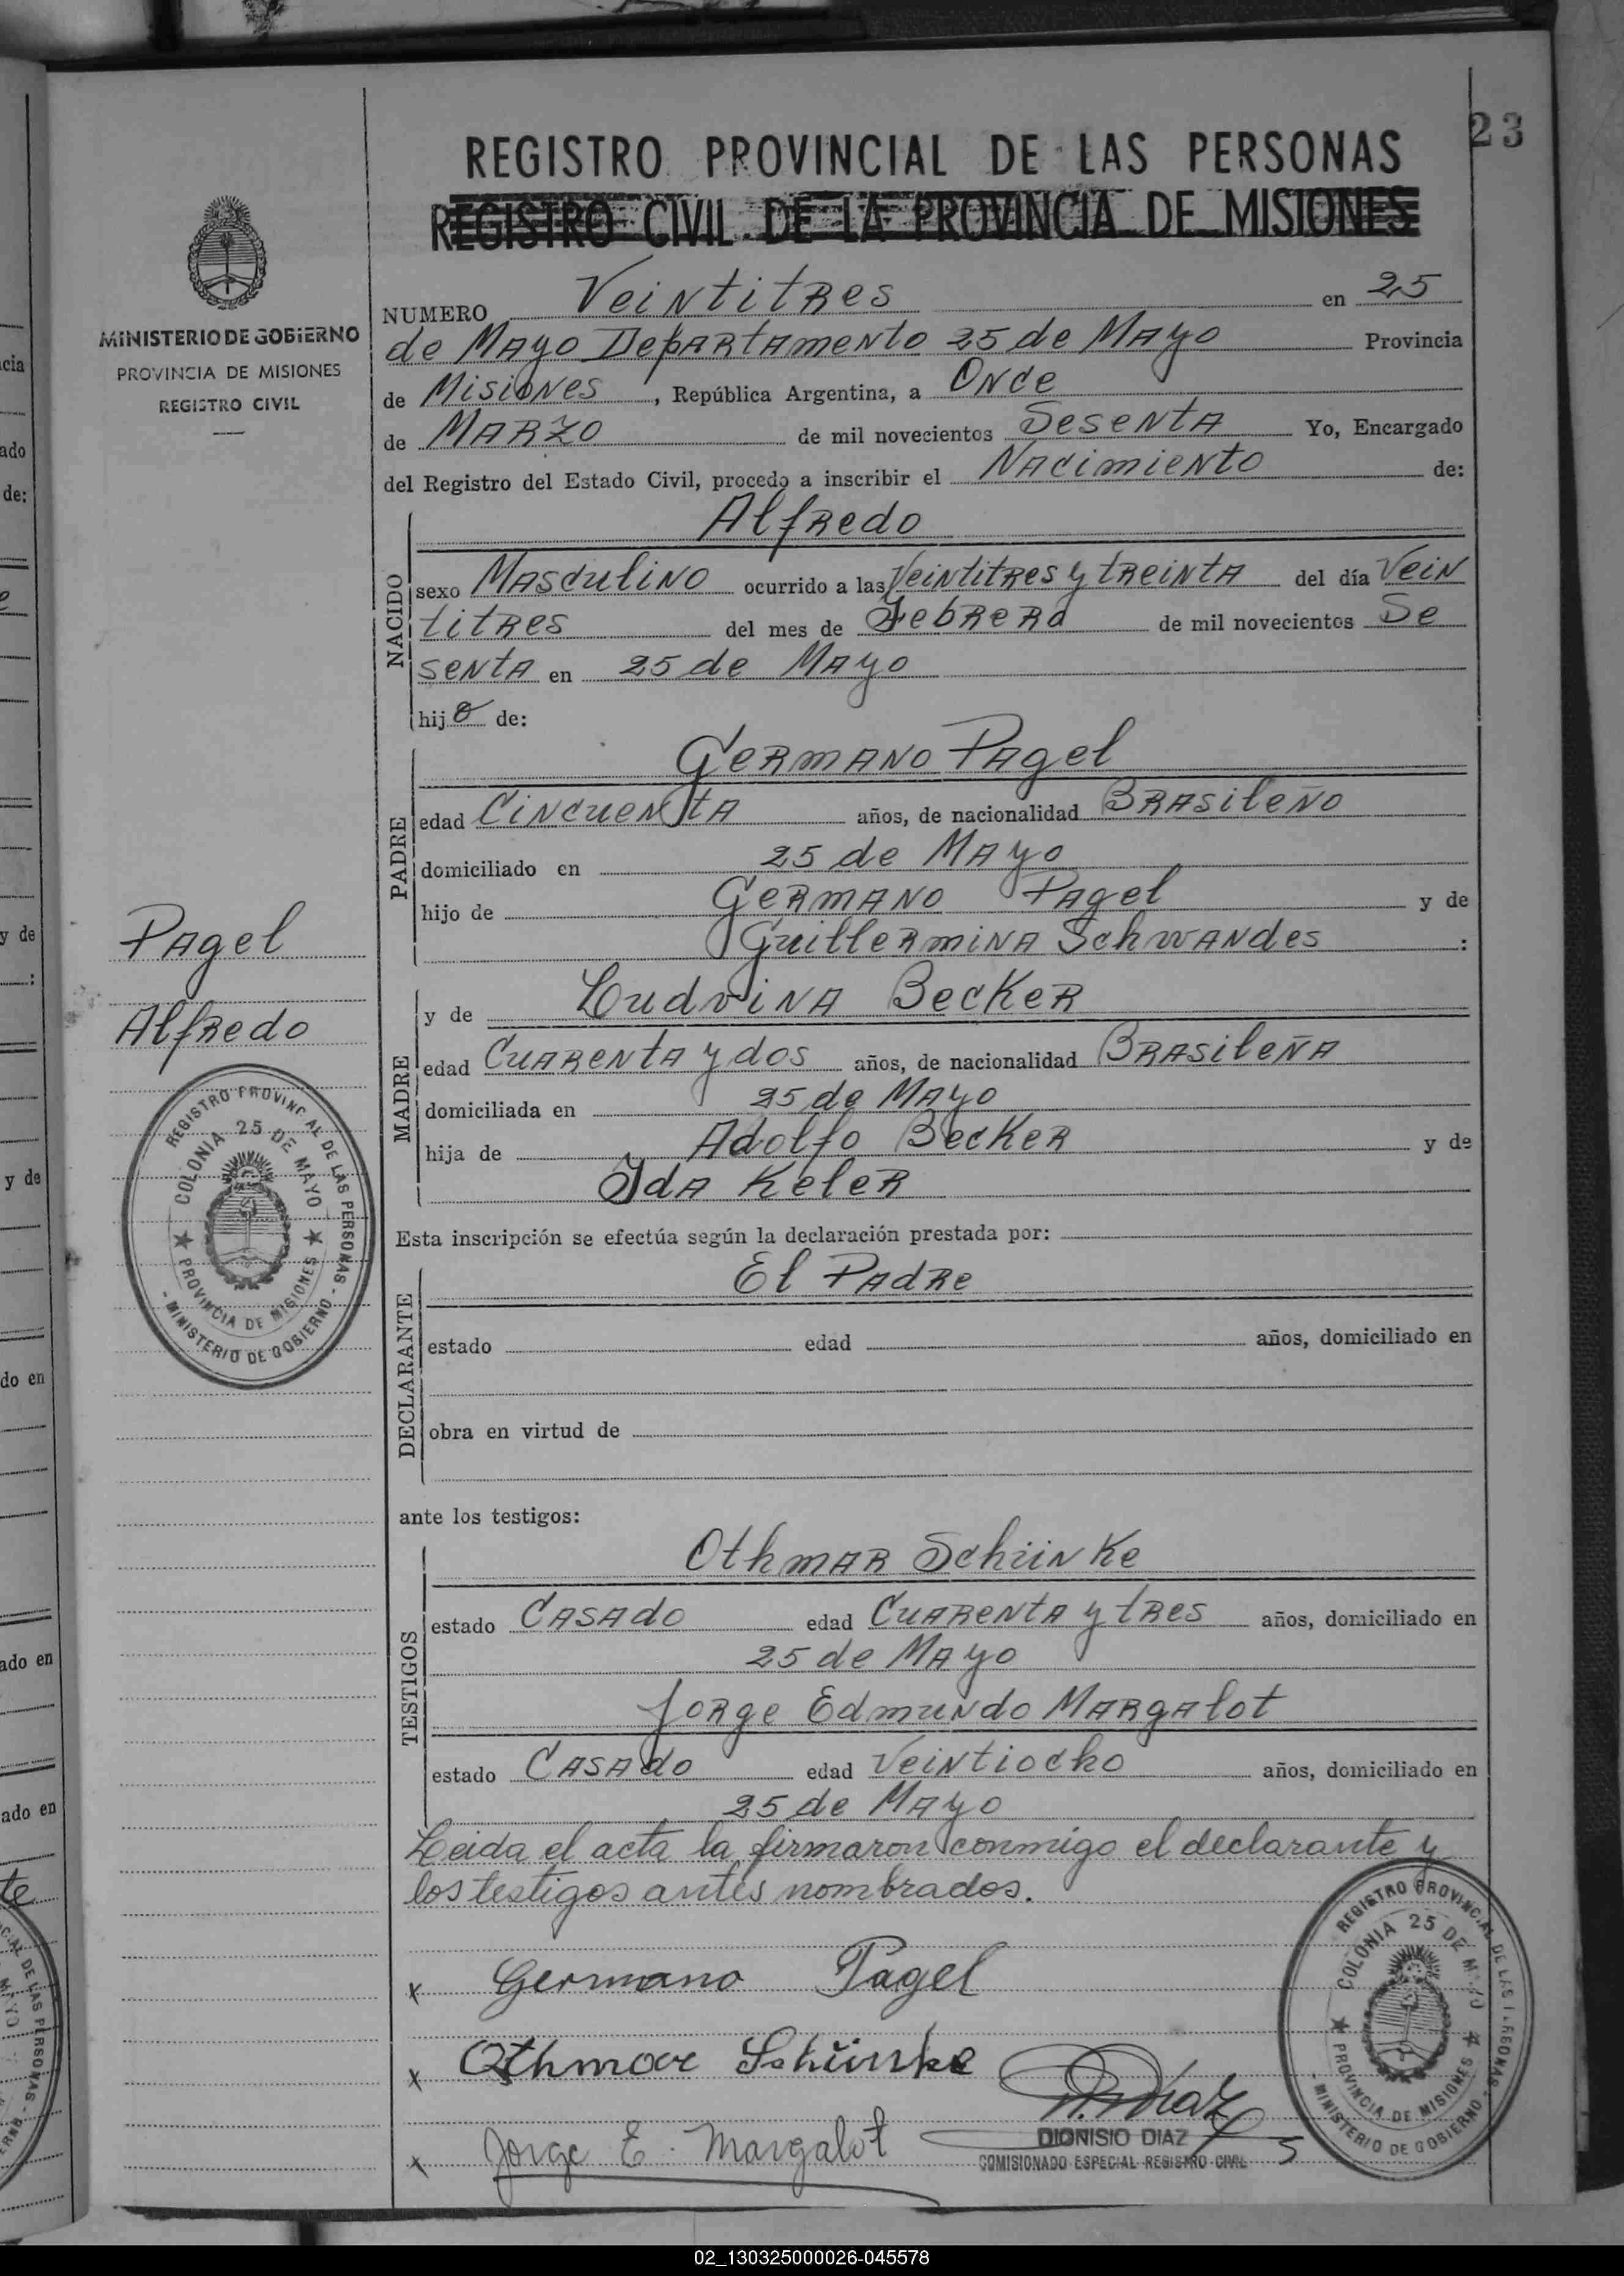 23
REGISTRO PROVINCIAL DE LAS PERSONAS
REGISTRO CIVIL DE LA PROVINCIA DE MISIONES
MINISTERIO DE GOBIERNO
PROVINCIA DE MISIONES
REGISTRO CIVIL
NUMERO Veintitres en 25
de Mayo Departamento 25 de Mayo Provincia
de Misiones, República Argentina, a Once
de Marzo de mil novecientos Sesenta Yo, Encargado
del Registro del Estado Civil, procedo a inscribir el Nacimiento de:
NACIDO
Alfredo
sexo Masculino ocurrido a las Veintitres y treinta del día Vein
titres del mes de Febrero de mil novecientos Se
senta en 25 de Mayo
hijo de:
PADRE
Germano Pagel
edad Cincuenta años, de nacionalidad Brasileño
domiciliado en 25 de Mayo
hijo de Germano Pagel y de
Guillermina Schwandes :
Pagel
Alfredo
MADRE
y de Ludvina Becker
edad Cuarenta y dos años, de nacionalidad Brasileña
domiciliada en 25 de Mayo
hija de Adolfo Becker y de
Ida Keler
REGISTRO PROVINCIAL DE LAS PERSONAS - MINISTERIO DE GOBIERNO -
COLONIA 25 DE MAYO ★ PROVINCIA DE MISIONES ★
Esta inscripción se efectúa según la declaración prestada por:
DECLARANTE
El Padre
estado edad años, domiciliado en
obra en virtud de
ante los testigos:
TESTIGOS
Othmar Schünke
estado Casado edad Cuarenta y tres años, domiciliado en
25 de Mayo
Jorge Edmundo Margalot
estado Casado edad Veintiocho años, domiciliado en
25 de Mayo
Leida el acta la firmaron conmigo el declarante y
los testigos antes nombrados.
x Germano Pagel
x Othmar Schünke
D. Diaz
x Jorge E. Margalot
DIONISIO DIAZ
COMISIONADO ESPECIAL REGISTRO CIVIL
REGISTRO PROVINCIAL DE LAS PERSONAS - MINISTERIO DE GOBIERNO -
COLONIA 25 DE MAYO ★ PROVINCIA DE MISIONES ★
cia
ado
de:
y de
:
y de
do en
ado en
ado en
te
02_130325000026-045578